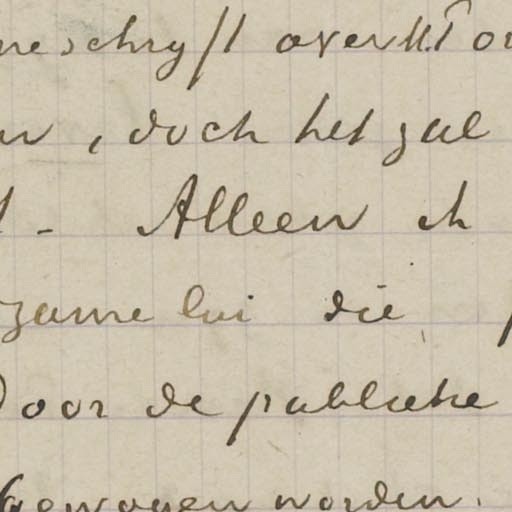 meschryft over
, doch het zal
- Alleen ik
zame lui die
Door de publieke
bewogen worden.